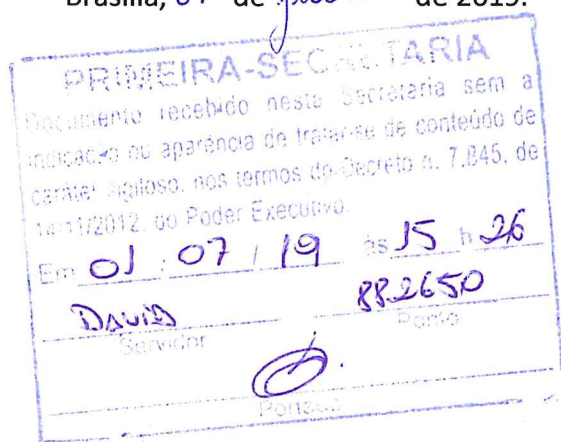 Brasília, 01 de de 2019.
PRIMEIRA-SECRETARIA
Documento recebido nesta Secretaria sem a
indicação ou aparência de tratar-se de conteúdo de
caráter sigiloso, nos termos do Decreto n. 7.845, de
14/11/2012, do Poder Executivo.
Em 01 / 07 / 19 às 15 h 26
DAVID 882650
Servidor Ponto
Portador